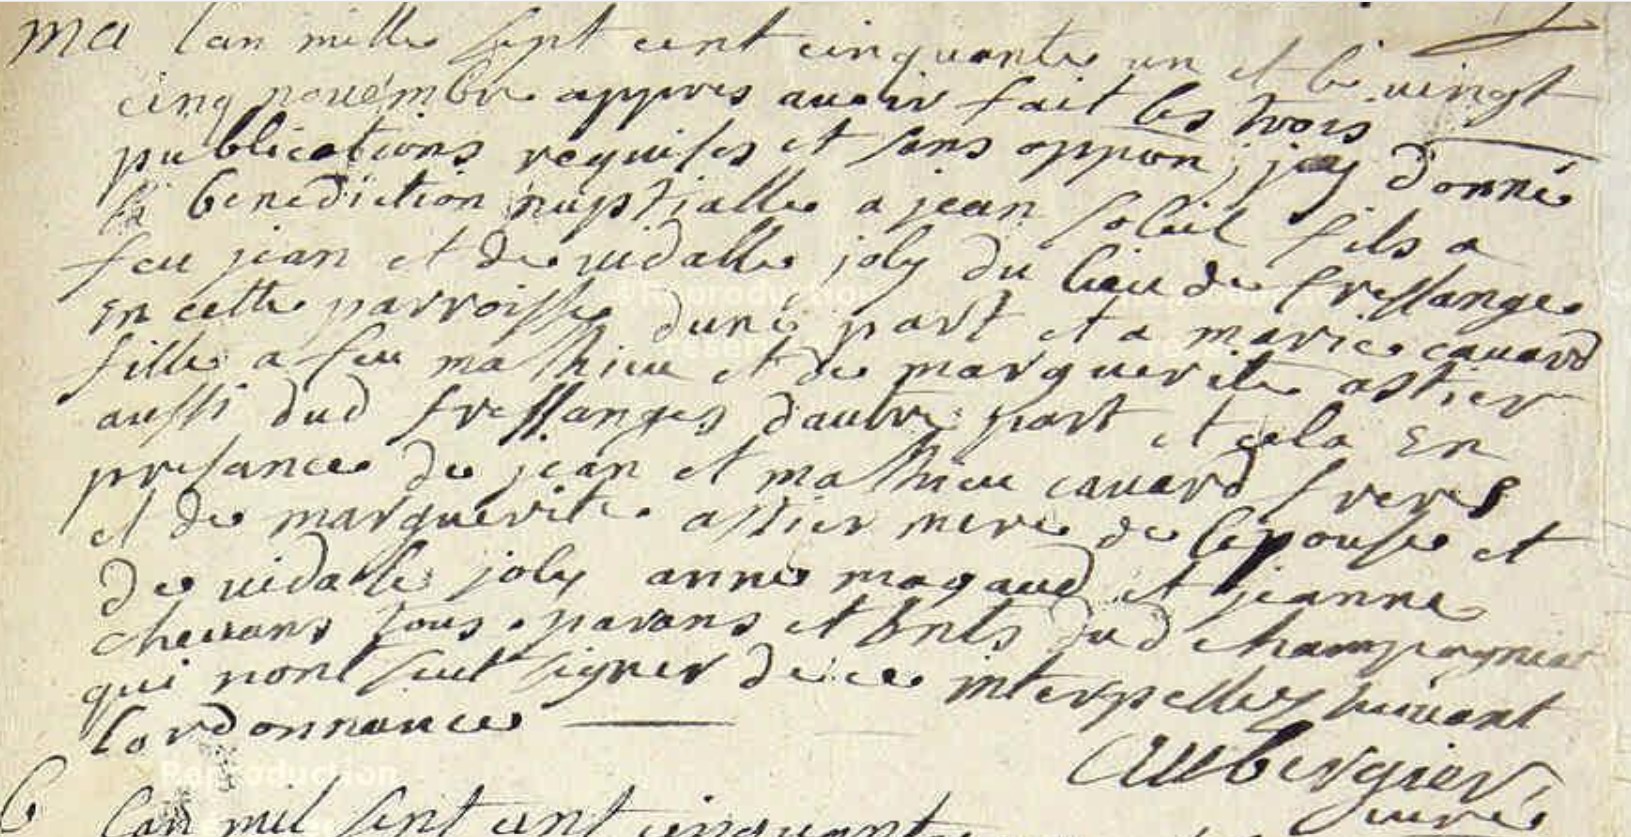 ma lan mille sept cent cinquante un et le vingt
cinq novembre appres auoir fait les trois
publications requises et sans oppon, jay donné
la benediction nuptjalle a jean soleil fils a
feu jean et de uidalle joly du lieu de fressange
en cette parroisse dune part et a marie cauard
fille a feu mathieu et de marguerite astier
aussi dud fressanges dautre part et cela en
presance de jean et mathieu cauard freres
et de marguerite astier mere de lepouse et
de uidalle joly anne magaud et jeanne
tous parans et bnts dud champagnac
qui nont sceut signer de ce interpelles suiuant
lordonnance
Aubergier,
curé
lan mil sept cent cinquante
Reproduction